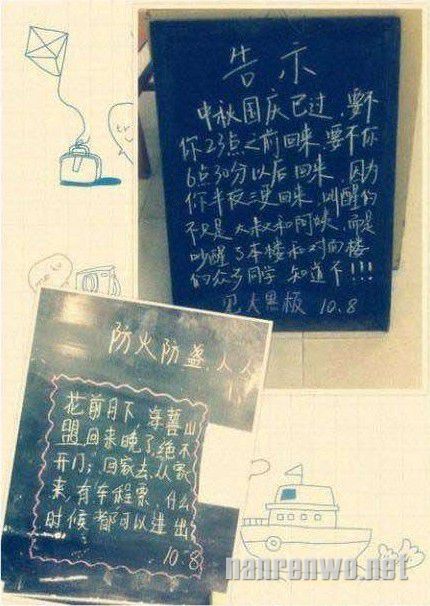 告示
中秋国庆已过，要不
你23点之前回来，要不你
6点30分以后回来，因为
你半夜三更回来，叫醒的
不只是大叔和阿姨，而是
吵醒了本楼和对面楼
的众多同学 知道不!!!
见大黑板 10.8
防火防盗，人人
花前月下，海誓山
盟，回来晚了，绝不
开门；回家去，从家
来，有车程票，什么
时候都可以进出
10.8
nanrenwo.net